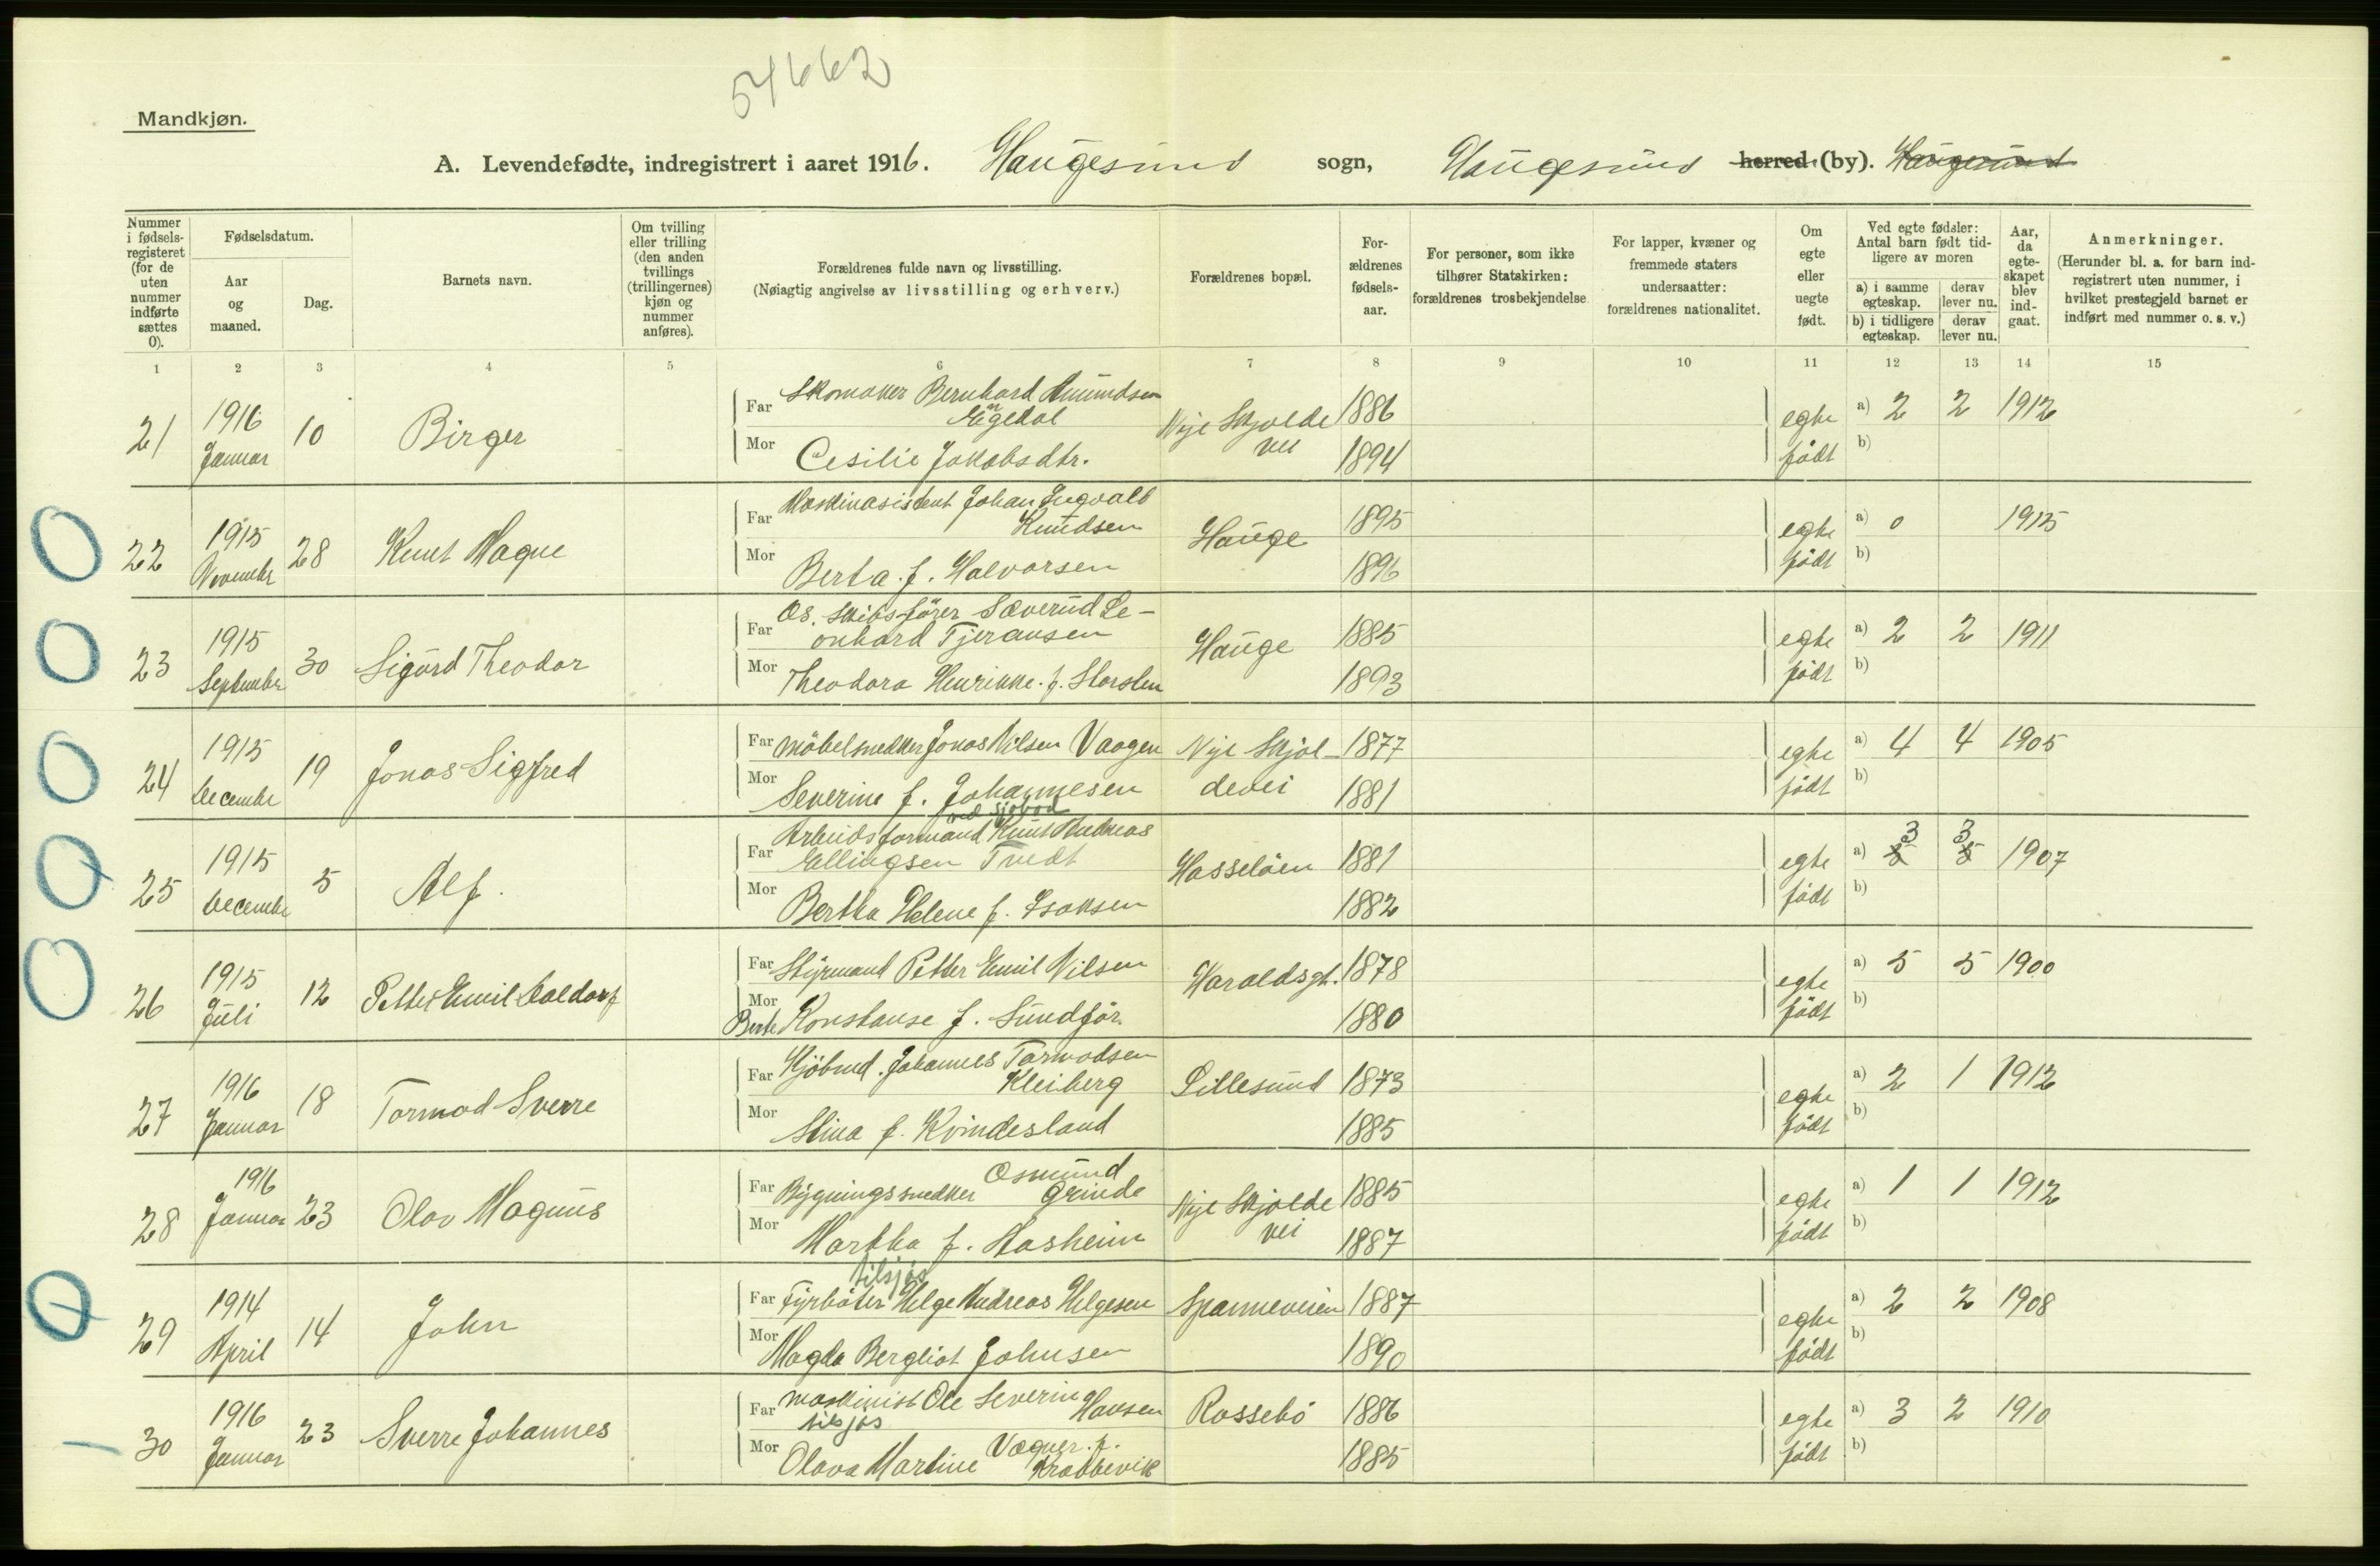 54662
Mandkjøn.
A. Levendefødte, indregistrert i aaret 1916. Haugesund sogn, Haugesund herred (by). Haugesund
Nummer i fødsels-registeret (for de uten nummer indførte sættes 0).
Fødselsdatum.
Aar og maaned.
Dag.
Barnets navn.
Om tvilling eller trilling (den anden tvillings (trillingernes) kjøn og nummer anføres).
Forældrenes fulde navn og livsstilling.
(Nøiagtig angivelse av livsstilling og erhverv.)
Forældrenes bopæl.
For-ældrenes fødsels-aar.
For personer, som ikke tilhører Statskirken: forældrenes trosbekjendelse
For lapper, kvæner og fremmede staters undersaatter: forældrenes nationalitet.
Om egte eller uegte født.
Ved egte fødsler: Antal barn født tid-ligere av moren
a) i samme egteskap.
derav lever nu.
b) i tidligere egteskap.
derav lever nu.
Aar, da egte-skapet blev ind-gaat.
Anmerkninger.
(Herunder bl. a. for barn ind-registrert uten nummer, i hvilket prestegjeld barnet er indført med nummer o. s. v.)
1 2 3 4 5 6 7 8 9 10 11 12 13 14 15
21 1916 Januar 10 Birger
Far Skomaker Bernhard Amundsen
Egedal
Mor Cesilie Jakobsdtr.
Nye Skjolde vei 1886 1894 egte født a) 2 2 1912 b)
22 1915 November 28 Knut Magne
Far Maskinasistent Johan Ingvald
Knudsen
Mor Berta f. Halvorsen
Hauge 1895 1896 egte født a) 0 1915 b)
23 1915 September 30 Sigurd Theodor
Far Os. Skibsfører Severud Le-
onhard Tjeransen
Mor Theodora Henrikke f. Storsten
Hauge 1885 1893 egte født a) 2 2 1911 b)
24 1915 December 19 Jonas Sigfred
Far Möbelsnedker Jonas Nilsen Vaagen
Mor Severine f. Johannesen
Nye Skjol-devei 1877 1881 egte født a) 4 4 1905 b)
25 1915 December 5 Alf.
ved sjøbod
Far Arbeidsformand Knut Andreas
Ellingsen Tvedt
Mor Bertha Helene f. Isaksen
Hasseløen 1881 1882 egte født a) 3 3 1907 b)
26 1915 Juli 12 Petter Emil Haldorf
Far Styrmand Petter Emil Nilsen
Mor Berte Konstanse f. Sundför
Haraldsgt. 1878 1880 egte født a) 5 5 1900 b)
27 1916 Januar 18 Tormod Sverre
Far Kjöbmd. Johannes Tormodsen
Kleiberg
Mor Stina f. Kvindesland
Lillesund 1873 1885 egte født a) 2 1 1912 b)
28 1916 Januar 23 Olav Magnus
Far Bygningssnedker Osmund
Grinde
Mor Martha f. Aasheim
Nye Skjolde vei 1885 1887 egte født a) 1 1 1912 b)
29 1914 April 14 John
tilsjøs
Far Fyrbøter Helge Andreas Helgesen
Mor Magda Bergliot Johnsen
Spanneveien 1887 1890 egte født a) 2 2 1908 b)
30 1916 Januar 23 Sverre Johannes
Far Maskinist Ole Severin Hansen
tilsjøs
Mor Olava Martine Vagner f.
Krabbevik
Rossebö 1886 1885 egte født a) 3 2 1910 b)